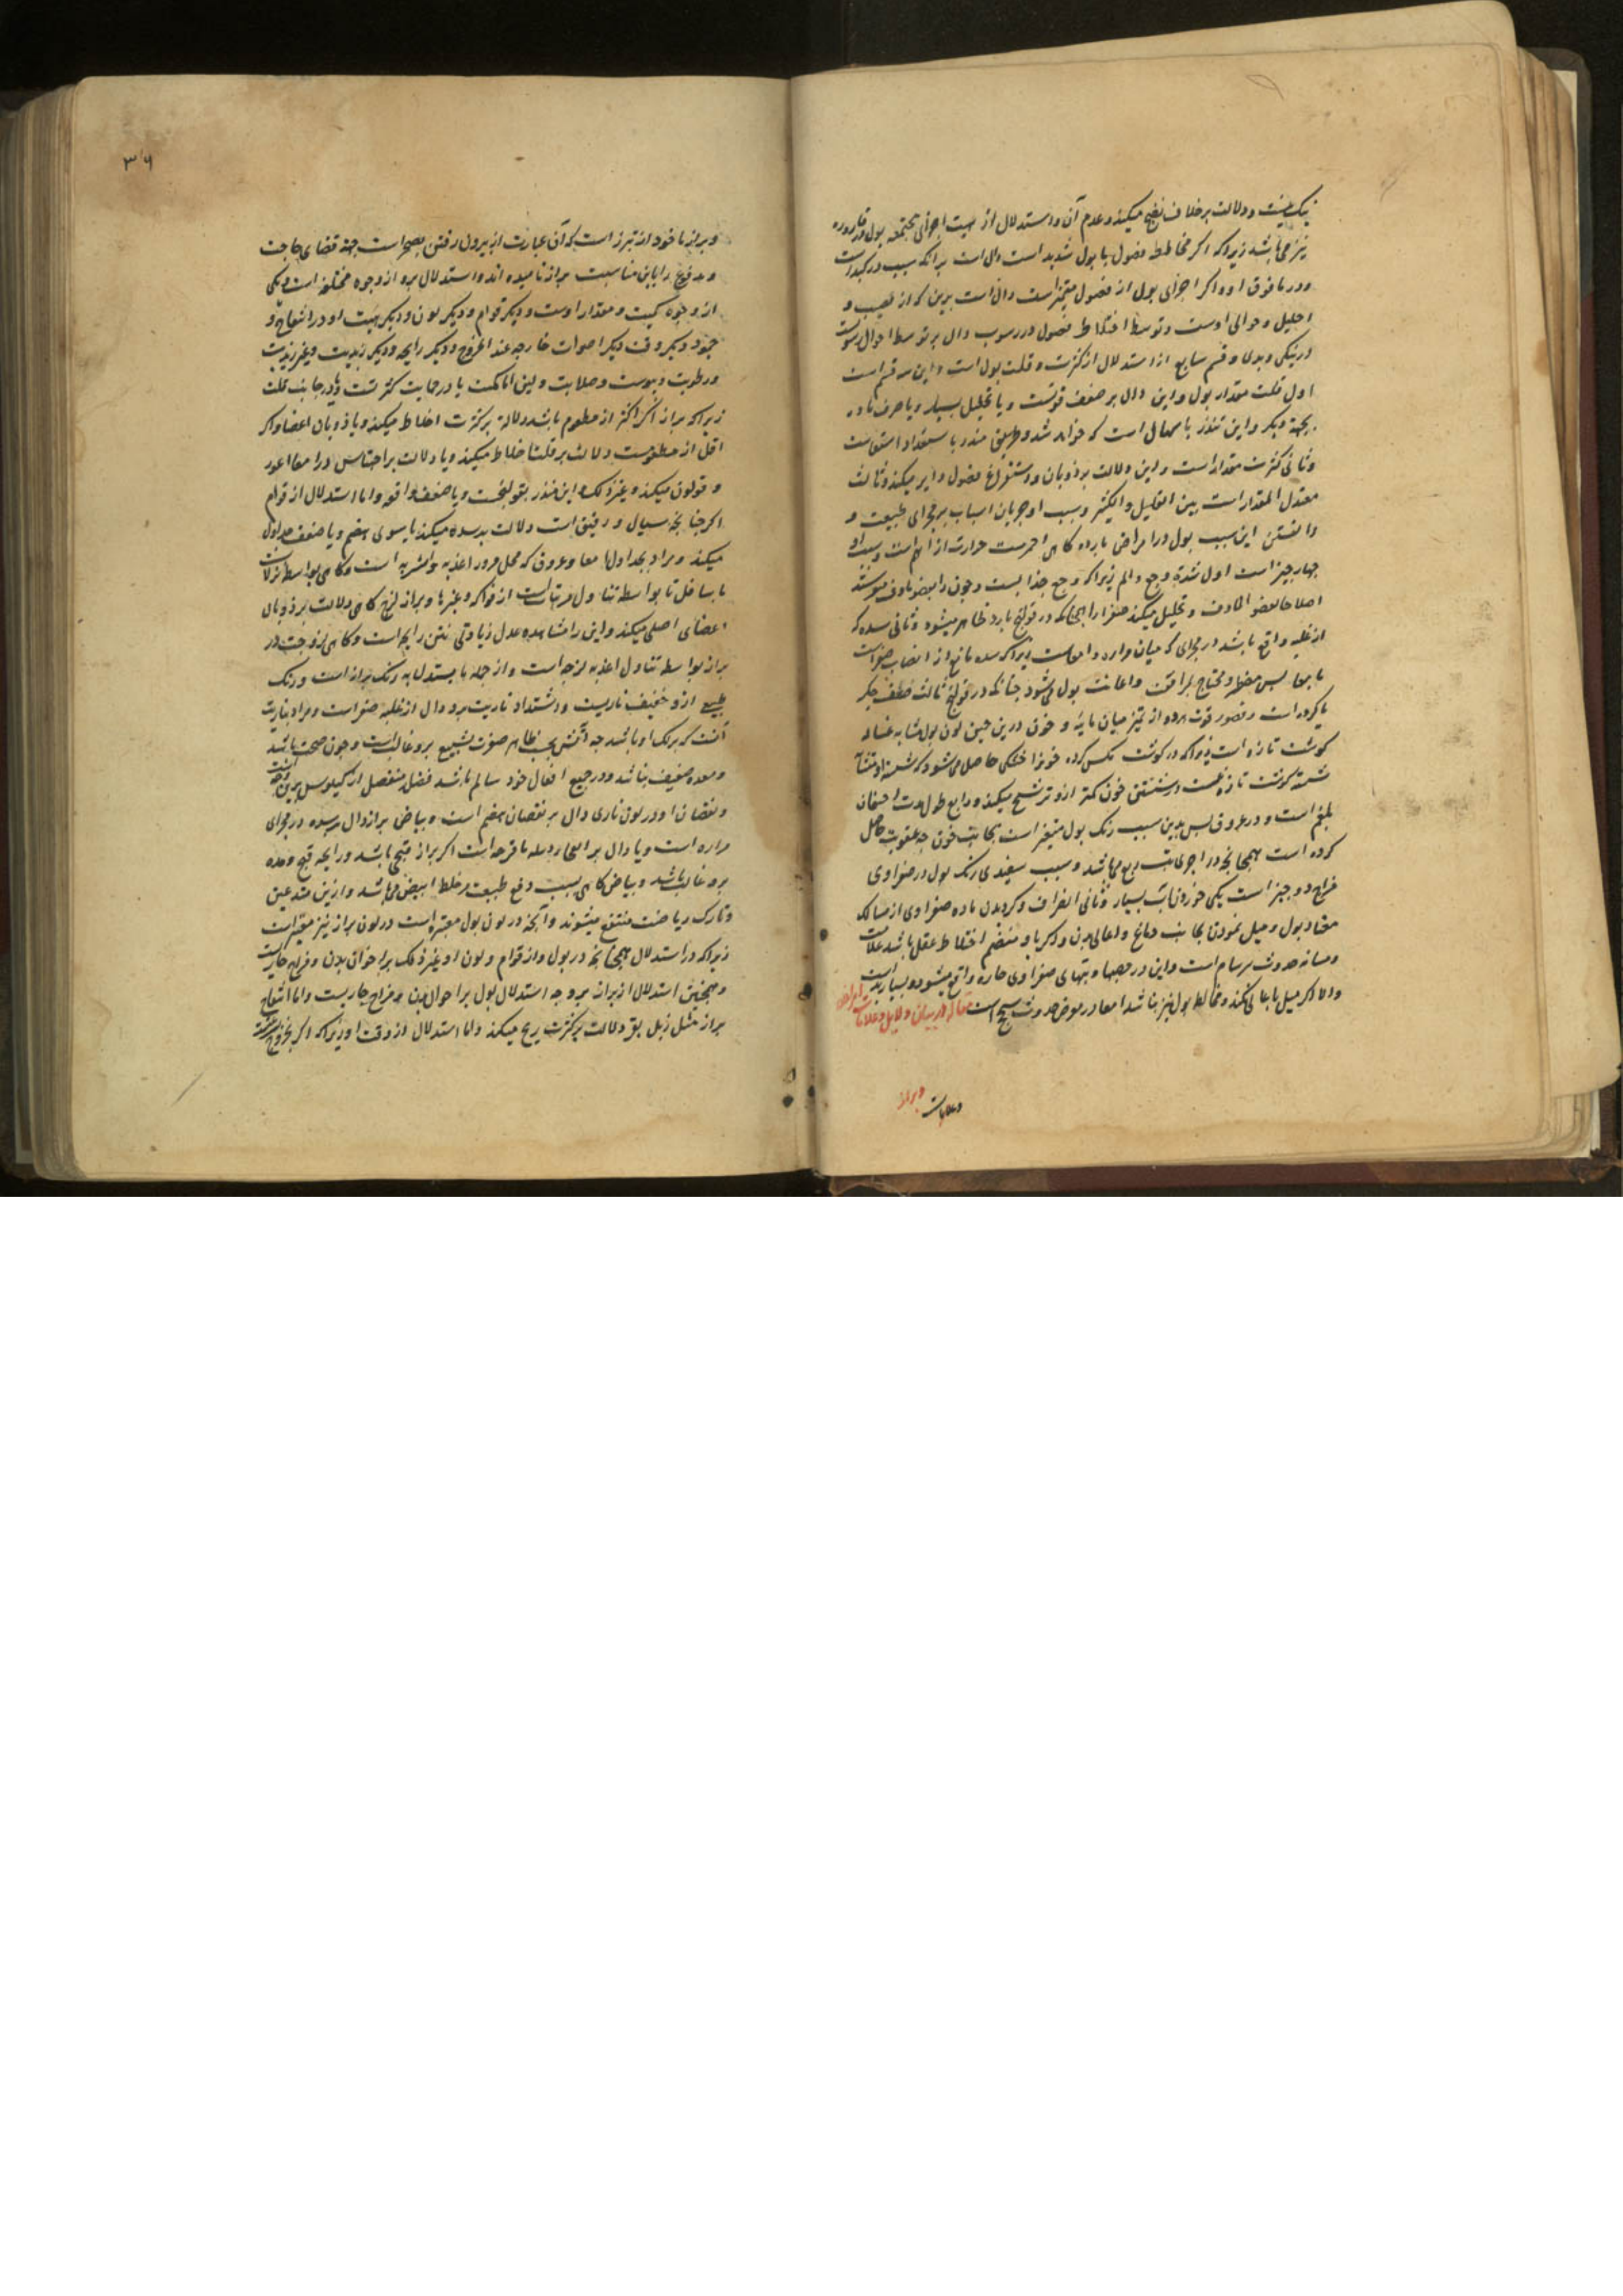 نیک نیست و دلالت بر خلاف نضج میکند و عدم آن و استدلال از هیت اجزای مجتمعه بول در قاروره
نیز می باشد زیرا که اکر مخالطه فضول با بول شدید است دال است بر آنکه سبب در کبد است
و در مافوق او و اکر اجزای بول از فضول متمیز است دال است برین که از قضیب و
احلیل و حوالی اوست و توسط اختلاط فضول در رسوب دال بر توسط احوال رسوب
در نیکی و بدی و قسم سابع از استدلال از کثرت و قلت بول است و این سه قسم است
اول قلت مقدار بول و این دال بر ضعف قوتست و یا تحلیل بسیار و یا صرف ماده
بجهة دیکر و این تنذر باسهال است که خواهد شد و طریق منذر باستعداد استسقاست
و ثانی کثرت مقدار است و این دلالت بر ذوبان و استفراغ فضول دایر میکند و ثالث
معتدل المقدار است بین القلیل و الکثیر و سبب او جریان اسباب بر مجرای طبیعت و
دانستن این سبب بول در امراض بارده کاهی احمرست حرارت از آنهم است و سبب او
چهار چیز است اول شدة وجع و الم زیرا که وجع جذابست و چون را بعضو ماوف میرسند
اصلاحا لعضو الماوف و تحلیل میکند صفرا را همچنانکه در قولنج بارد ظاهر میشود و ثانی سده که
از غلبه واقع باشد در مجرای که میان مراره و امعاست زیرا که سده مانع از انصباب صفراست
بامعا پس مضطر و محتاج بمرافقت و اعانت بول میشود چنانکه در قولنج ثالث ضعف جکر
یا کرده است و قصور قوت هر دو از تمیز میان مائیة و خون درین حین لون بول مشابه غساله
کوشت تازه است زیرا که در کوشت نمکس کرده خونرا خشکی حاصل میشود که شستن او
شستن کوشت تازه نیست و شستن خون کمتر ازو ترشیح میکند و رابع طول مدت احتقان
بلغم است و در عروق پس بدین سبب رنک بول متغیر است بجانب خون چه عفونت حاصل
کرده است همچنانکه در اجرای تب ربع می باشد و سبب سفیدی رنک بول در صفراوی
مزاج دو چیز است یکی خوردن آب بسیار و ثانی انحراف و کردیدن ماده صفراوی از مسالک
معتاد بول و میل نمودن بجانب دماغ و اعالی بدن و اکر با او منضم اختلاط عقل باشد علامت
و مسانه حدوث سرسام است و این در حصبها و تبهای صفراوی حاره واقع میشود و بسیار بد است
و الا اکر میل باعالی نکند و مخالط بول نیز نباشد امعا در معرض حدوث سحج است مقاله در بیان دلایل و علامات امراض
و براز
و علامات
۳۶
و براز ماخوذ از تبرز است که آن عبارت از بیرون رفتن بصحراست جهة قضای حاجت
و مدفوع را باین مناسبت براز نامیده اند و استدلال برو از وجوه مختلفه است و یکی
از وجوه کمیت و مقدار اوست و دیکر قوام و دیکر لون و دیکر هیت او در انتفاخ و
جمود و دیکر وقت دیکر اصوات خارجه عند الخروج و دیکر رایحه و دیکر زبدیت و غیر زبدیت
و رطوبت و یبوست و صلابت و لین اما کمت یا در حمایت کثرتست و یا در جانب قلت
زیرا که براز اکر اکثر از مطعوم باشد دلالة بر کثرت اخلاط میکند و یا ذوبان اعضا و اکر
اقل از مطعوست دلالت بر قلت اخلاط میکند و یا دلالت بر احتباس در امعا اعور
و قولون میکند و غیر ذلک و این منذر بقولنجست و یا ضعف دافعه و اما استدلال از قوام
اکر چنانچه سیال و رقیق است دلالت بر سده میکند یا سوی هضم و یا ضعف جداول
میکند و مراد بجداول امعا و عروق که محل مرور اغذیه و اشربه است و کاهی بواسطه نزلات
باسافل تا بواسطه تناول مرتبات است از فواکه و غیرها و براز لزج کاهی دلالت بر ذوبان
اعضای اصلی میکند و این را مشاهده عدل زیادتی نتن رایحه است و کاهی لزوجت در
براز بواسطه تناول اغذیه لزجه است و از جمله ما یستدل به رنک براز است و رنک
طبیعی ازو خفیف ناریست و اشتداد ناریت برو دال از غلبه صفراست و مراد بناریت
آنست که برنک او باشد چه آتش بحسب ظاهر صفرت بشبیع برو غالب است و چون صحت باشد
و معده ضعیف نباشد و در جمیع افعال خود سالم باشد فضل منفصل از کیلوس برین رنکست
و نقصان او در لون ناری دال بر نقصان هضم است و بیاض براز دال بر سده در مجرای
مراره است و یا دال بر انفجار دبیله یا قرحه است اکر براز قیحی باشد و رایحه قیح و مده
برو غالب باشد و بیاض کاهی بسبب دفع طبیعت مر خلط ابیض می باشد و ازین متدعین
و تارک ریاضت منتفع میشوند و آنچه در لون بول معتبر است در لون براز نیز معتبر است
زیرا که در استدلال همچنانچه در بول و از قوام و لون او و غیر ذلک بر احوال بدن و مزاج جاریست
و همچنین استدلال از براز برو چه استدلال بول بر احوال بدن و مزاج جاریست و اما انتفاخ
براز مثل زبل بقر دلالت بر کثرت ریح میکند و اما استدلال از وقت او زیرا که اکر بخروج